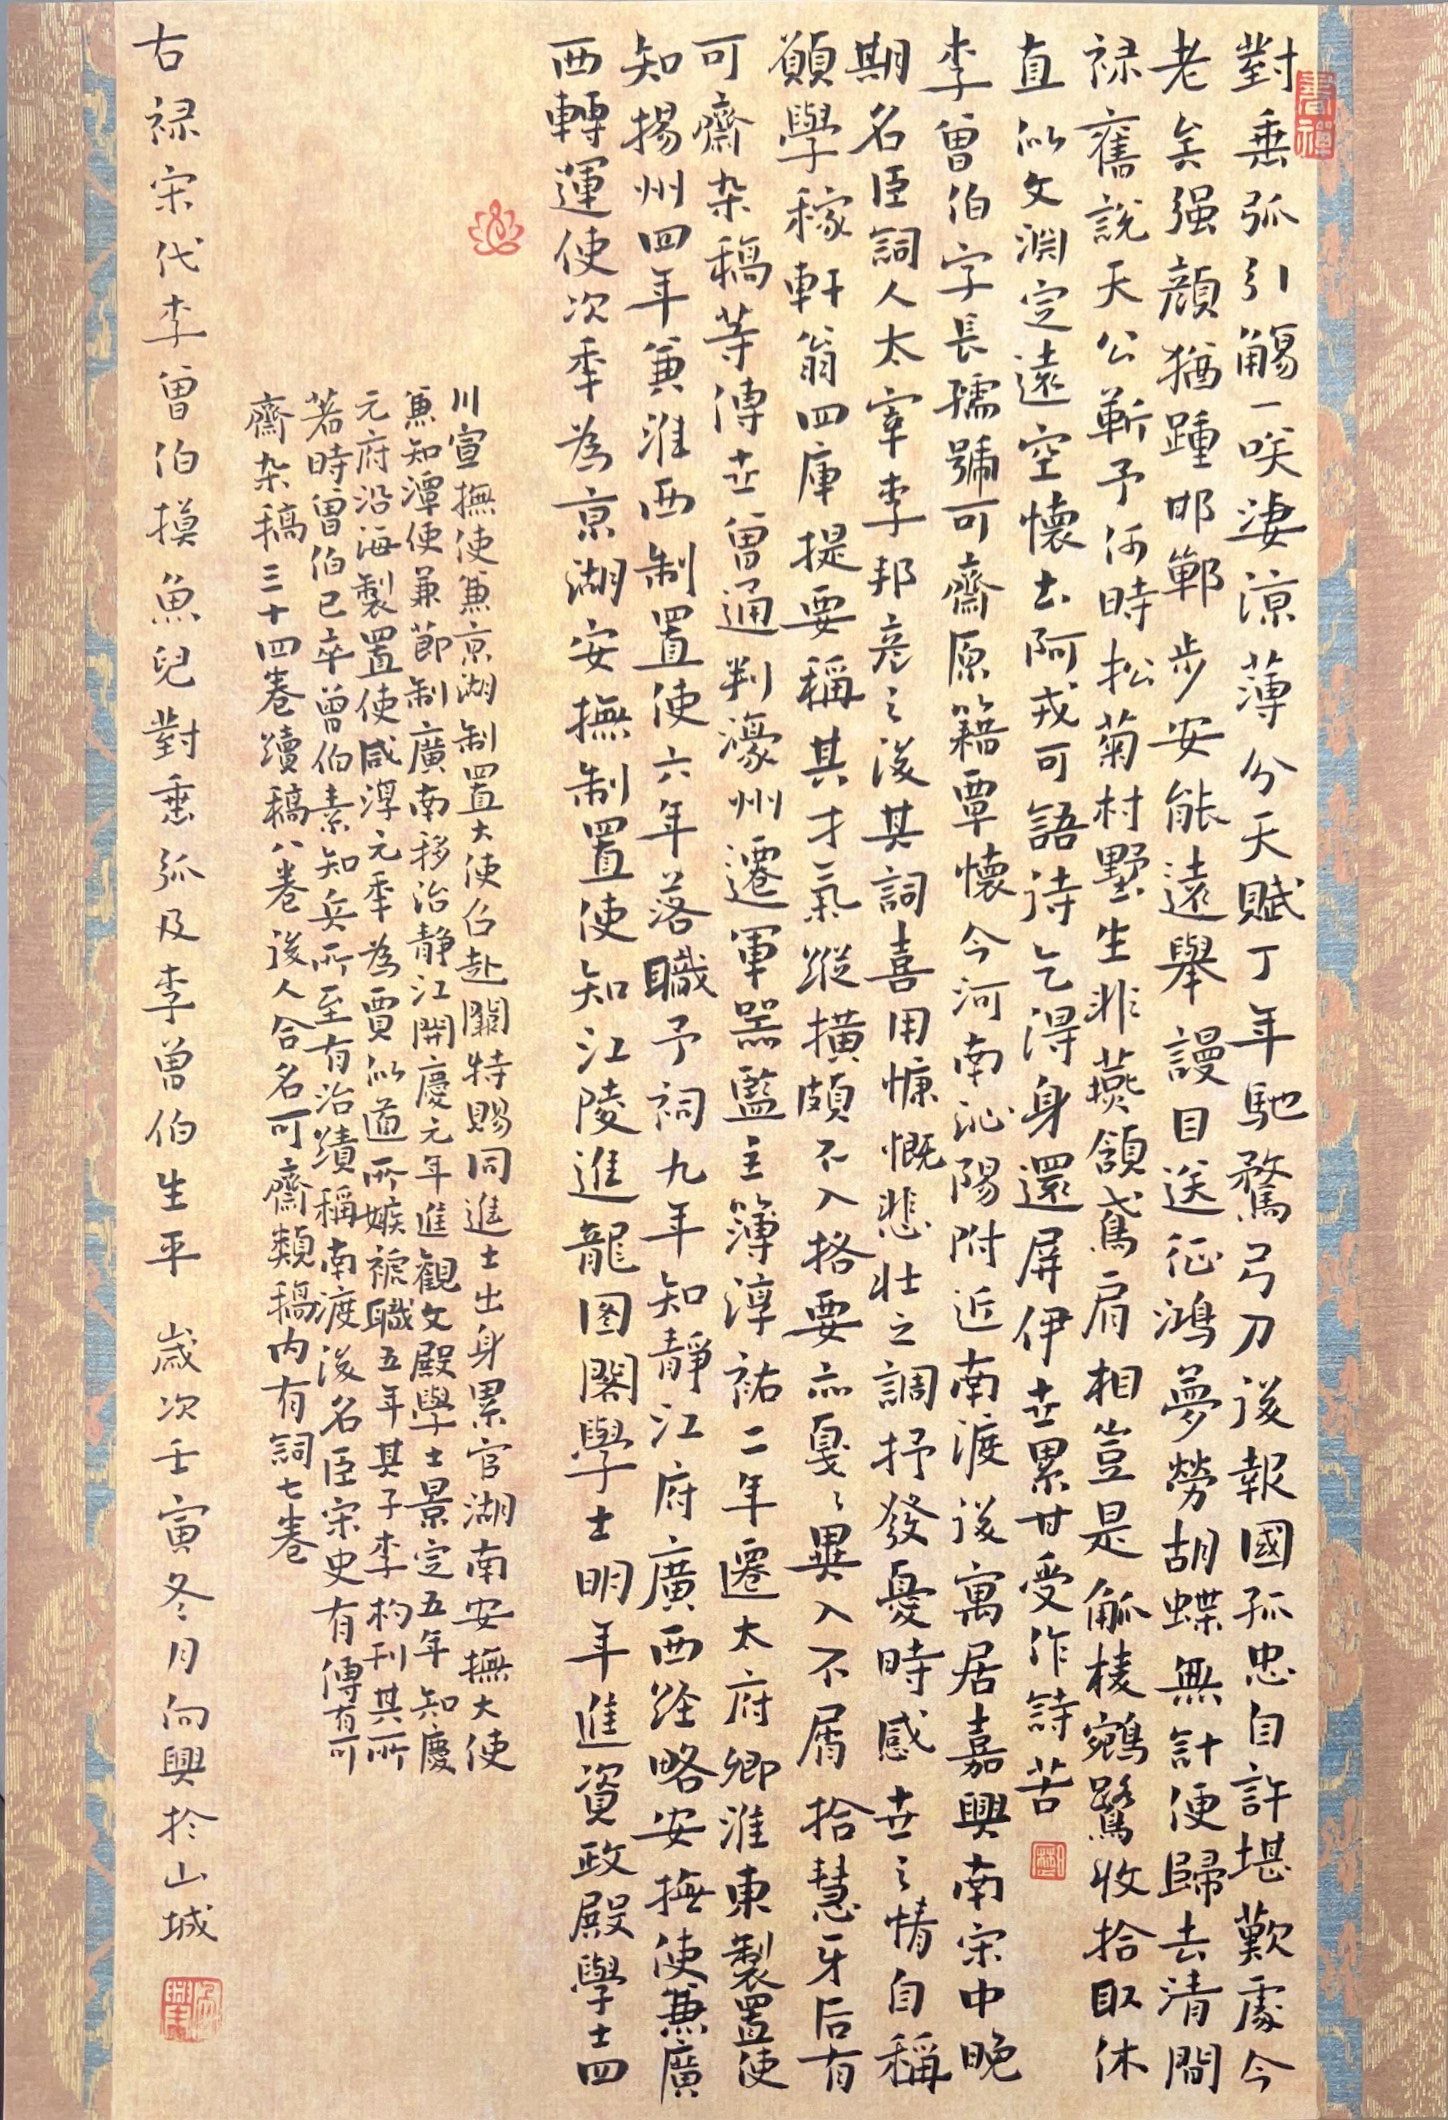 對垂弧引觴一笑淒涼薄分天賦丁年馳騖弓刀後報國孤忠自許堪歎處今
老矣强顔猶踵邯鄲步步安能遠舉謾目送征鴻夢勞胡蝶無計便歸去清閒
禄舊說天公靳予何時松菊村墅生非燕頷鳶肩相豈是觚棱鵷鷺收拾取休
直以文淵定遠空懷土阿戎可語待乞得身還屏伊世累甘受作詩苦
李曾伯字長孺號可齋原籍覃懷今河南沁陽附近南渡後寓居嘉興南宋中晚
期名臣詞人太宰李邦彦之後其詞喜用慷慨悲壯之調抒發憂時感世之情自稱
願學稼軒翁四庫提要稱其才氣縱横頗不入格要亦戛戛異人不屑拾慧牙后有
可齋杂稿等傳世曾通判濠州遷軍器監主簿淳祐二年遷太府卿淮東製置使
知揚州四年兼淮西制置使六年落職予祠九年知靜江府廣西經略安撫使兼廣
西轉運使次季為京湖安撫制置使知江陵進龍图閣學士明年進資政殿學士四
川宣撫使兼京湖制置大使召赴闕特賜同進士出身累官湖南安撫大使
兼知潭使兼節制廣南移治静江開慶元年進觀文殿學士景定五年知慶
元府沿海製置使咸淳元季為賈似道所嫉褫職五年其子李杓刊其所
著時曾伯已卒曾伯素知兵所至有治績稱南渡後名臣宋史有傳有可
齋杂稿三十四卷續稿八卷後人合名可齋類稿内有詞七卷
右禄宋代李曾伯摸魚兒對垂弧及李曾伯生平 歲次壬寅冬月向興於山城